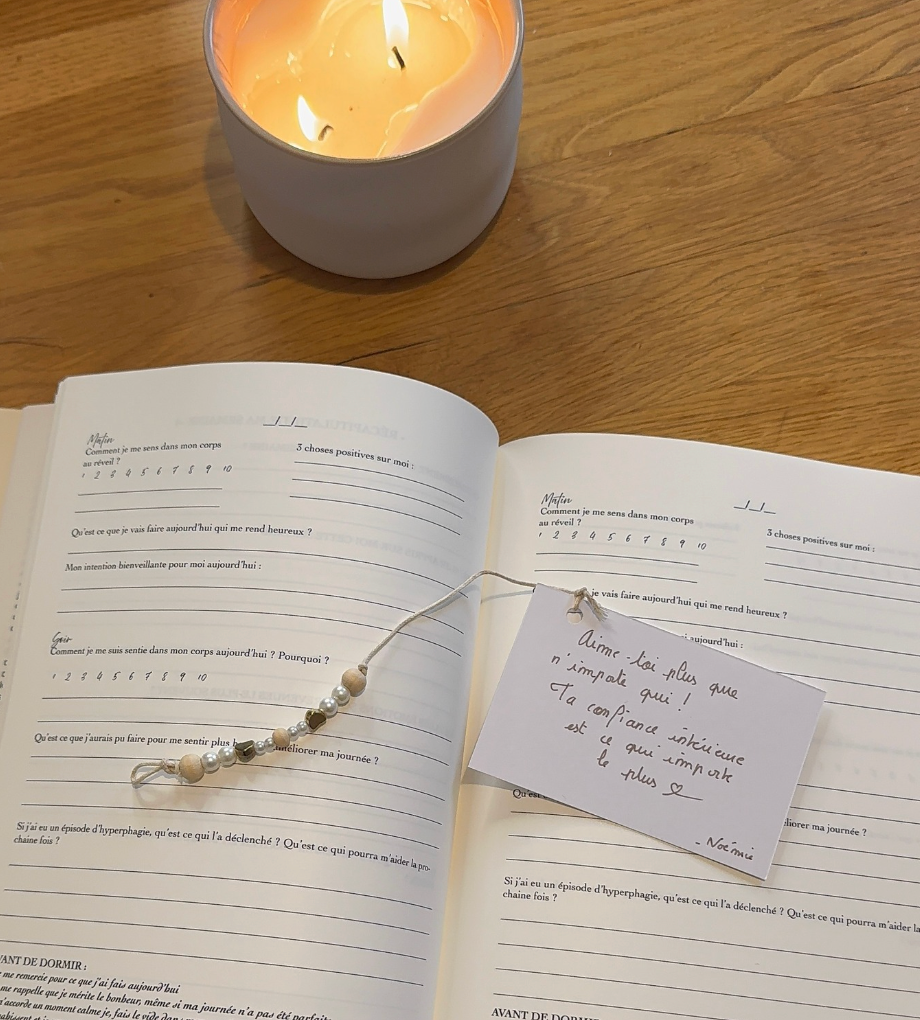 _/_/_
Matin
Comment je me sens dans mon corps
au réveil ?
1 2 3 4 5 6 7 8 9 10
3 choses positives sur moi :
Qu'est ce que je vais faire aujourd'hui qui me rend heureux ?
Mon intention bienveillante pour moi aujourd'hui :
Soir
Comment je me suis sentie dans mon corps aujourd'hui ? Pourquoi ?
1 2 3 4 5 6 7 8 9 10
Qu'est ce que j'aurais pu faire pour me sentir plus h
méliorer ma journée ?
Si j'ai eu un épisode d'hyperphagie, qu'est ce qui l'a déclenché ? Qu'est ce qui pourra m'aider la pro-
chaine fois ?
VANT DE DORMIR :
me remercie pour ce que j'ai fais aujourd'hui
me rappelle que je mérite le bonheur, même si ma journée n'a pas été parfaite
m'accorde un moment calme je, fais le vide dans
_/_/_
Matin
Comment je me sens dans mon corps
au réveil ?
1 2 3 4 5 6 7 8 9 10
3 choses positives sur moi :
je vais faire aujourd'hui qui me rend heureux ?
aujourd'hui :
Aime-toi plus que
n'impote qui !
Ta confiance intérieure
est ce qui importe
le plus ♡
- Noémie
Qu'est
liorer ma journée ?
Si j'ai eu un épisode d'hyperphagie, qu'est ce qui l'a déclenché ? Qu'est ce qui pourra m'aider la
chaine fois ?
AVANT DE DORM